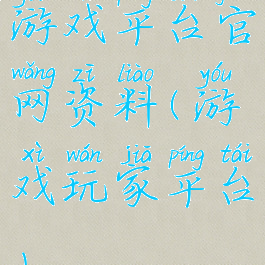 游戏平台官
wǎng zī liào yóu
网资料(游
xì wán jiā píng tái
戏玩家平台
)